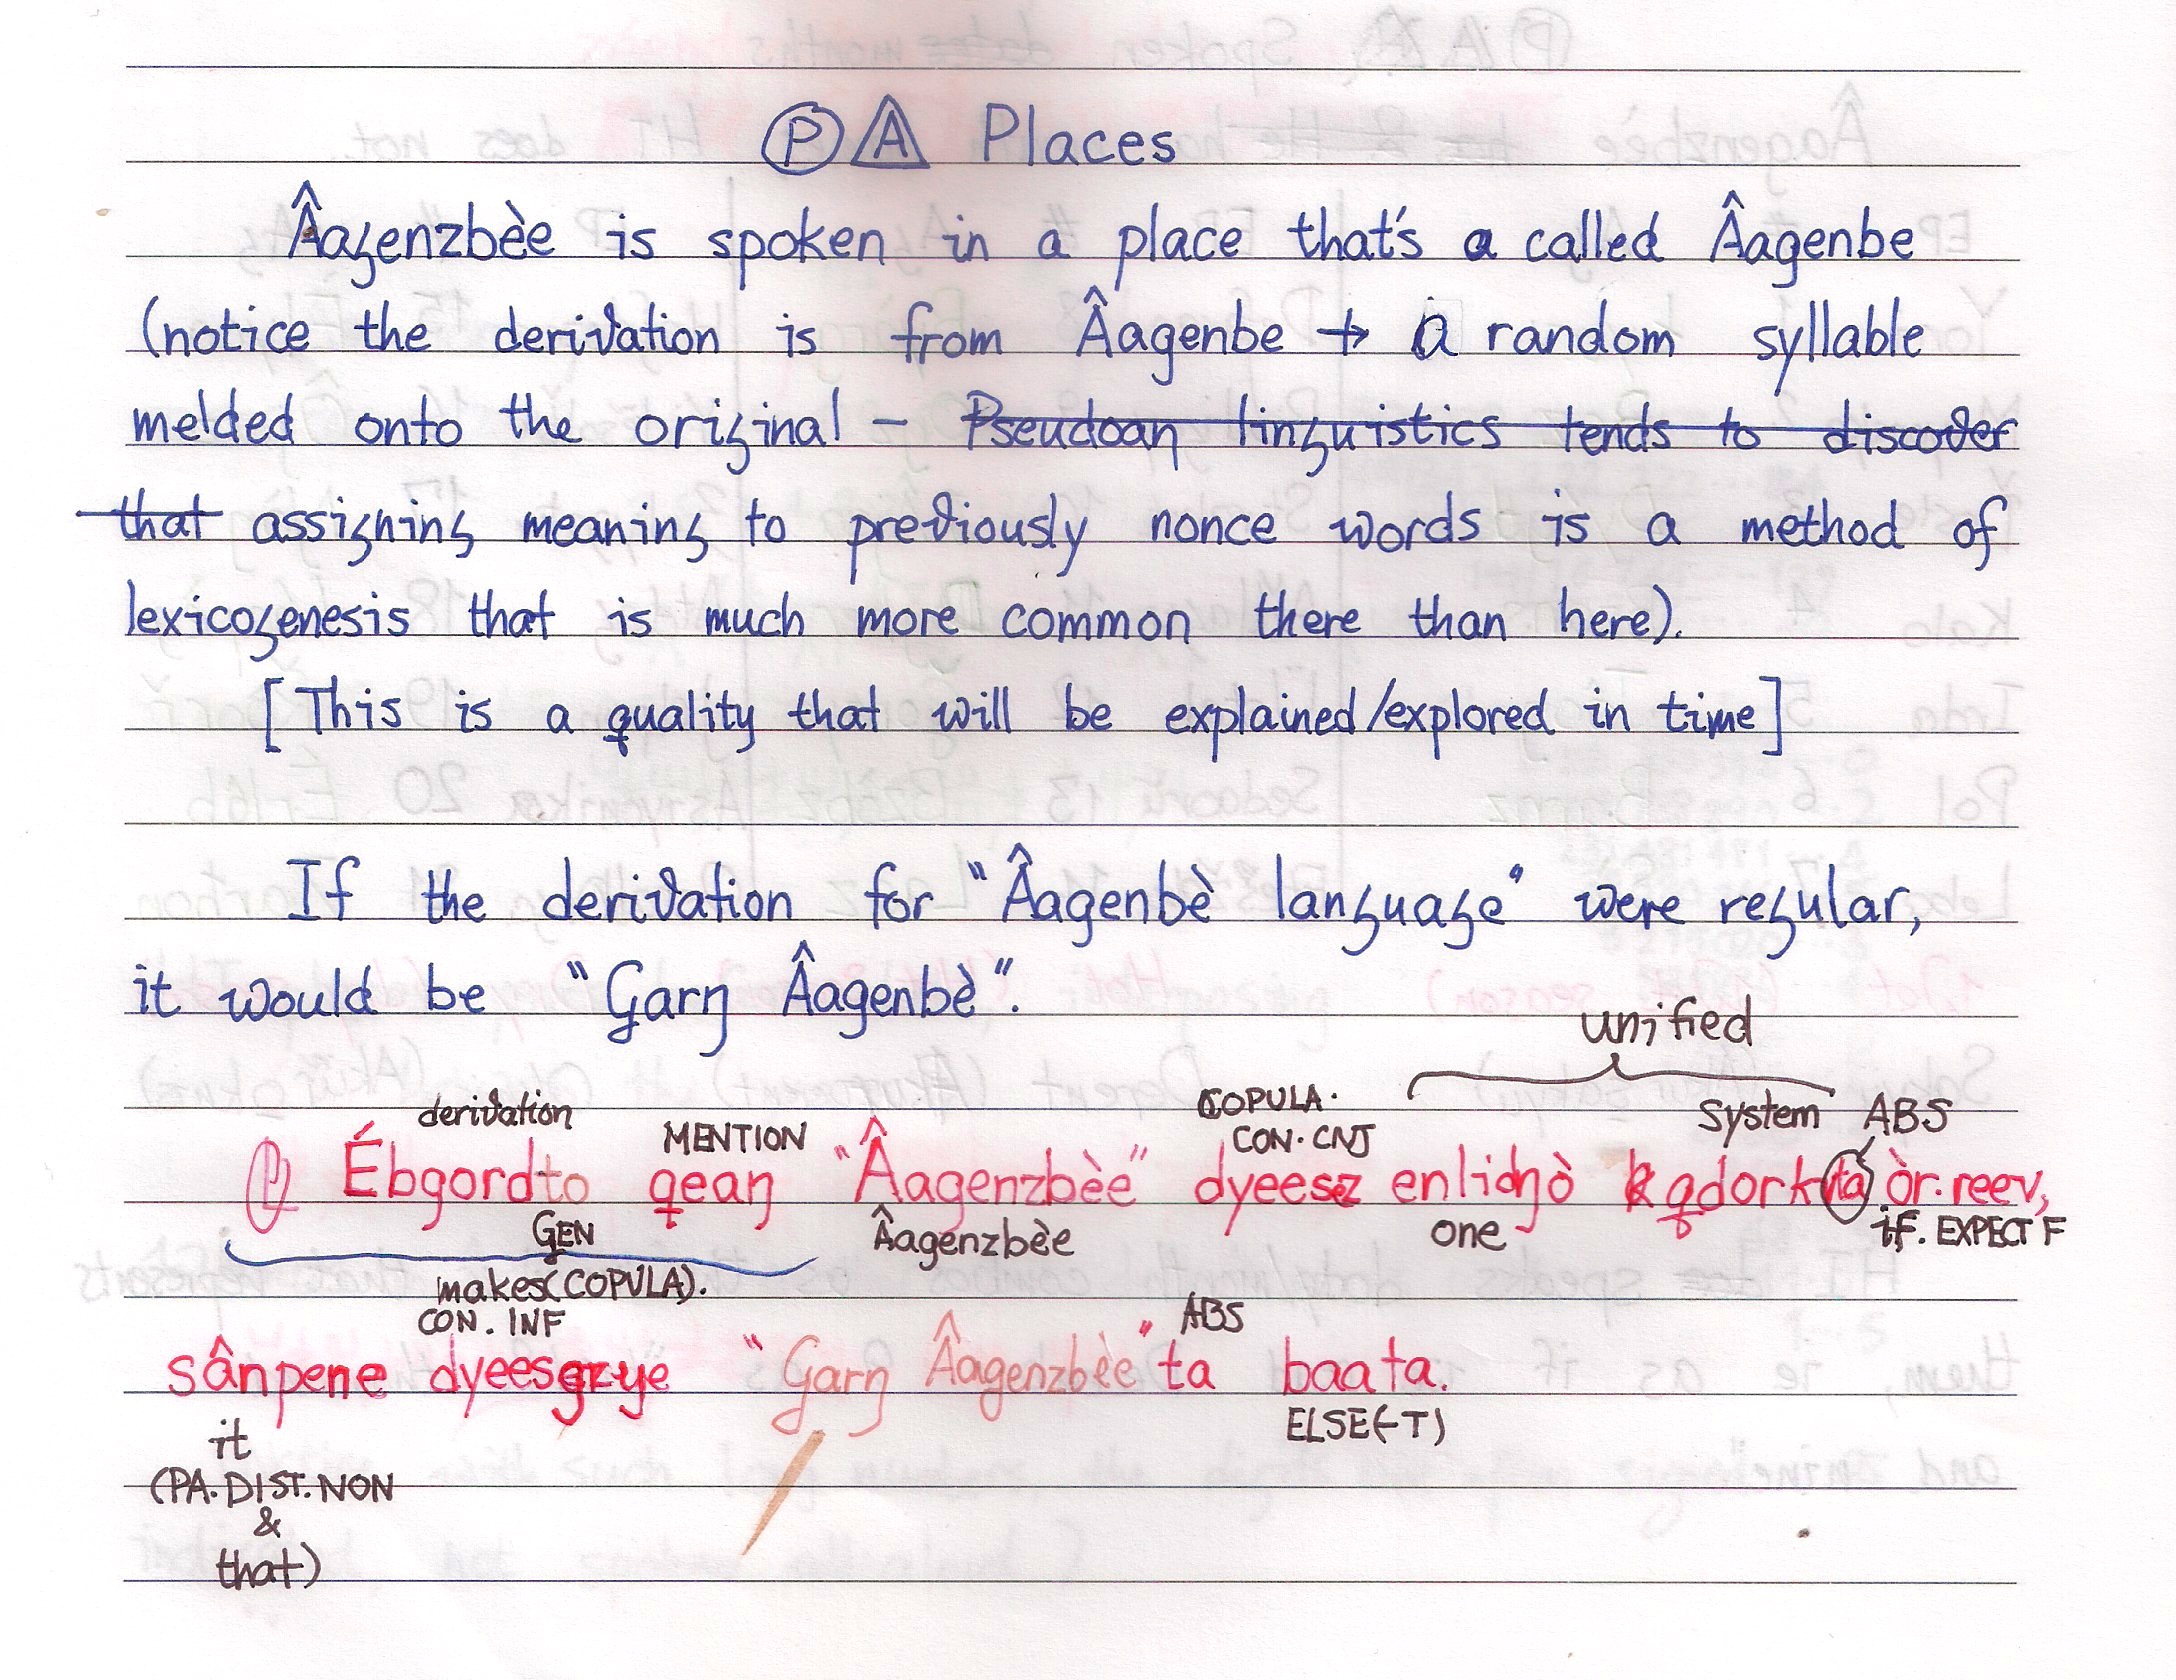 Ⓟ A Places
Âagenzbèe is spoken in a place that's a called Âagenbe
(notice the derivation is from Âagenbe + a random syllable
melded onto the original – Pseudoaŋ linguistics tends to discover
that assigning meaning to previously nonce words is a method of
lexicogenesis that is much more common there than here).
[This is a quality that will be explained/explored in time]
If the derivation for "Âagenbè language" were regular,
it would be "Garŋ Âagenbè".
unified
derivation MENTION COPULA. CON.CNJ System ABS
Ébgordto qeaŋ "Âagenzbèe" dyeesz enlidŋò qdorkta òr.reev,
GEN Âagenzbèe one if. EXPECT F
makes(COPULA).
CON. INF ABS
sânpene dyeesgzye "Garŋ Âagenzbèe"ta baata.
it ELSE(-T)
(PA.DIST.NON
&
that)